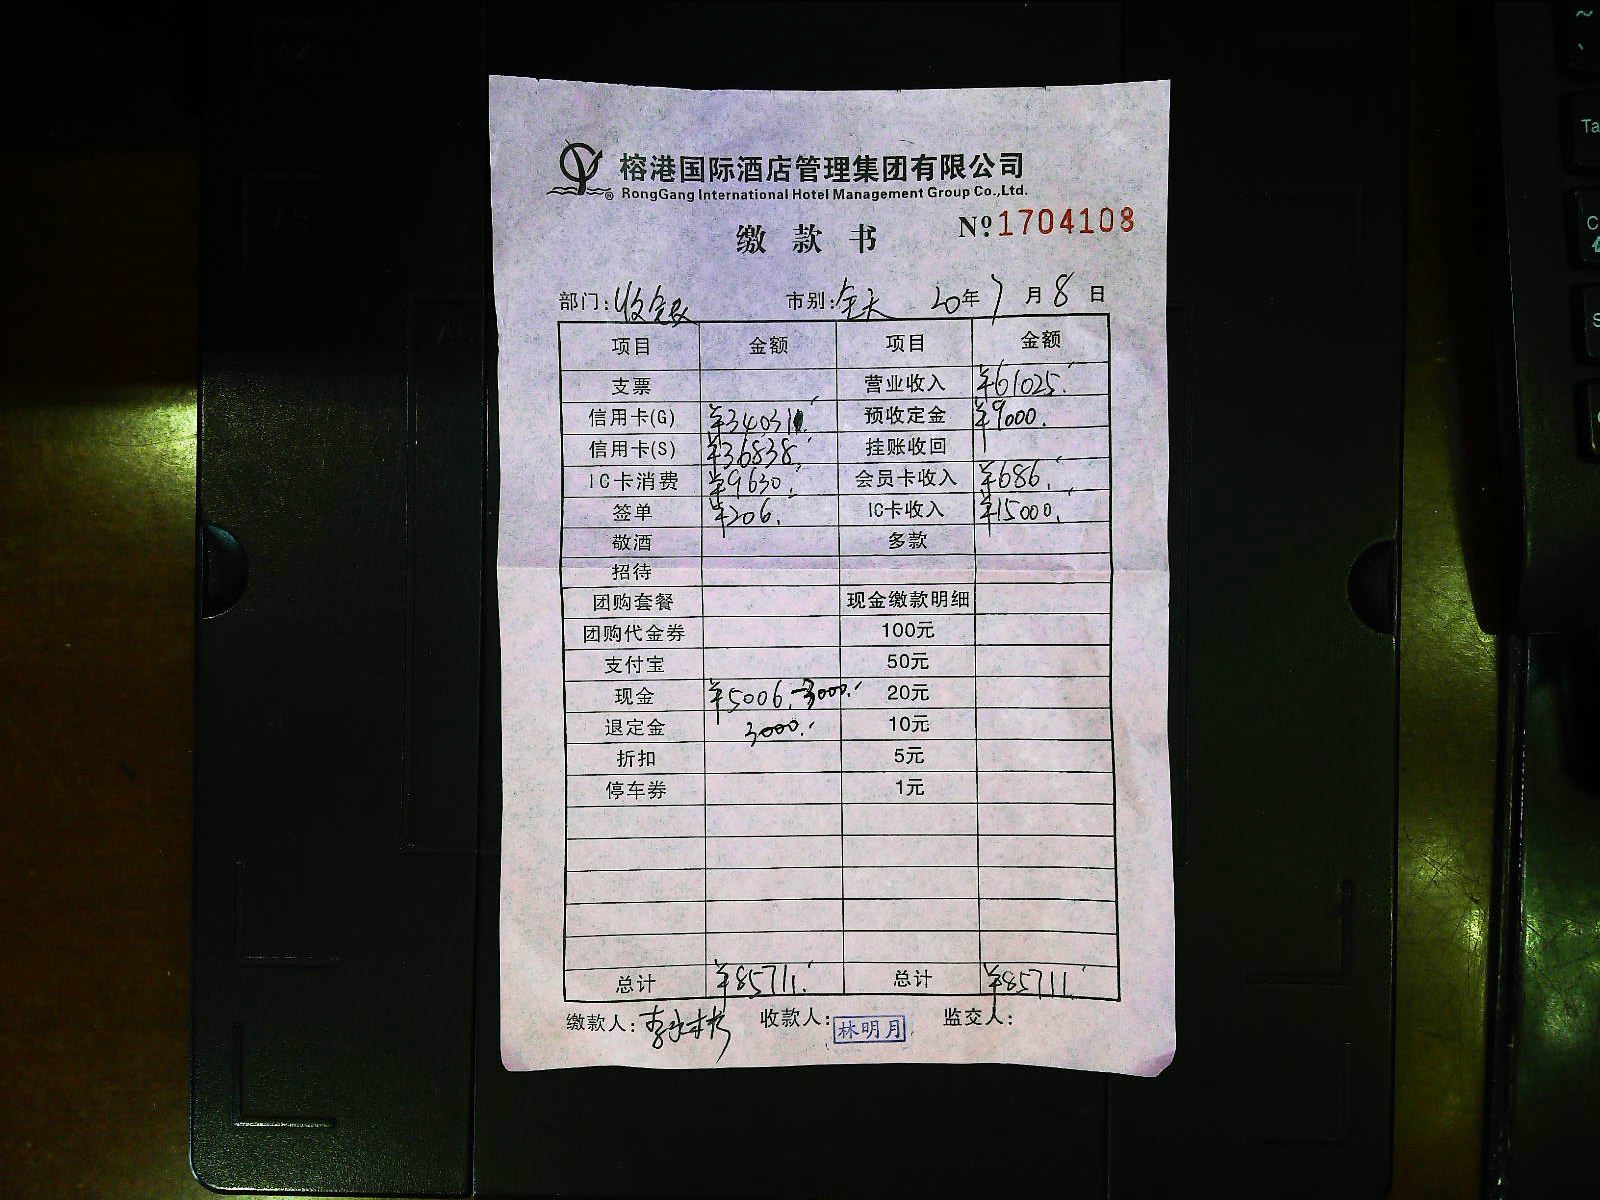 榕港国际酒店管理集团有限公司
® RongGang International Hotel Management Group Co.,Ltd.
缴款书 Nº 1704108
部门:收银 市别:全天 20年7月8日
项目 金额 项目 金额
支票 营业收入 ¥61025.
信用卡(G) ¥34031. 预收定金 ¥9000.
信用卡(S) ¥36838. 挂账收回
IC卡消费 ¥9630. 会员卡收入 ¥686.
签单 ¥206. IC卡收入 ¥15000.
敬酒 多款
招待
团购套餐 现金缴款明细
团购代金券 100元
支付宝 50元
现金 ¥5006.-3000. 20元
退定金 3000. 10元
折扣 5元
停车券 1元
总计 ¥85711. 总计 ¥85711.
缴款人: 收款人:林明月 监交人:
~
Ta